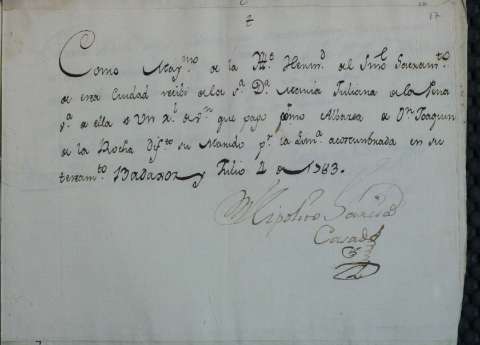 17
Como May.mo de la Ill.e Herm.d del Smo. Sacram.to
de esta Ciudad recibí de la s.a D.a Juliana de la Peña
v.a de ella Un r.l de v.n que pagó como Albacea de D.n Joaquin
de la Rocha dif.to su Marido p.r la Lim.a acostumbrada en su
testam.to Badaxoz y Julio 2 de 1783.
Hipolito
Casado